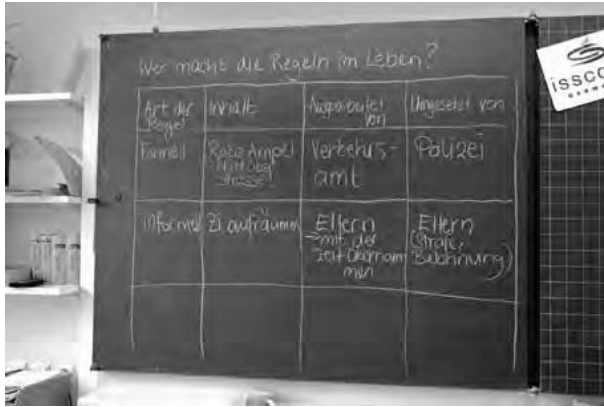 Wer macht die Regeln im Leben?
Art der Regel
Inhalt
Ausgearbeitet von
Umgesetzt von
Formell
Rote Ampel
strasse
Verkehrs-
amt
Polizei
Informell
Zi aufräumen
Eltern
→ mit der
Zeit übernom
men
Eltern
(Strafe,
Belohnung)
issco
GERMANY